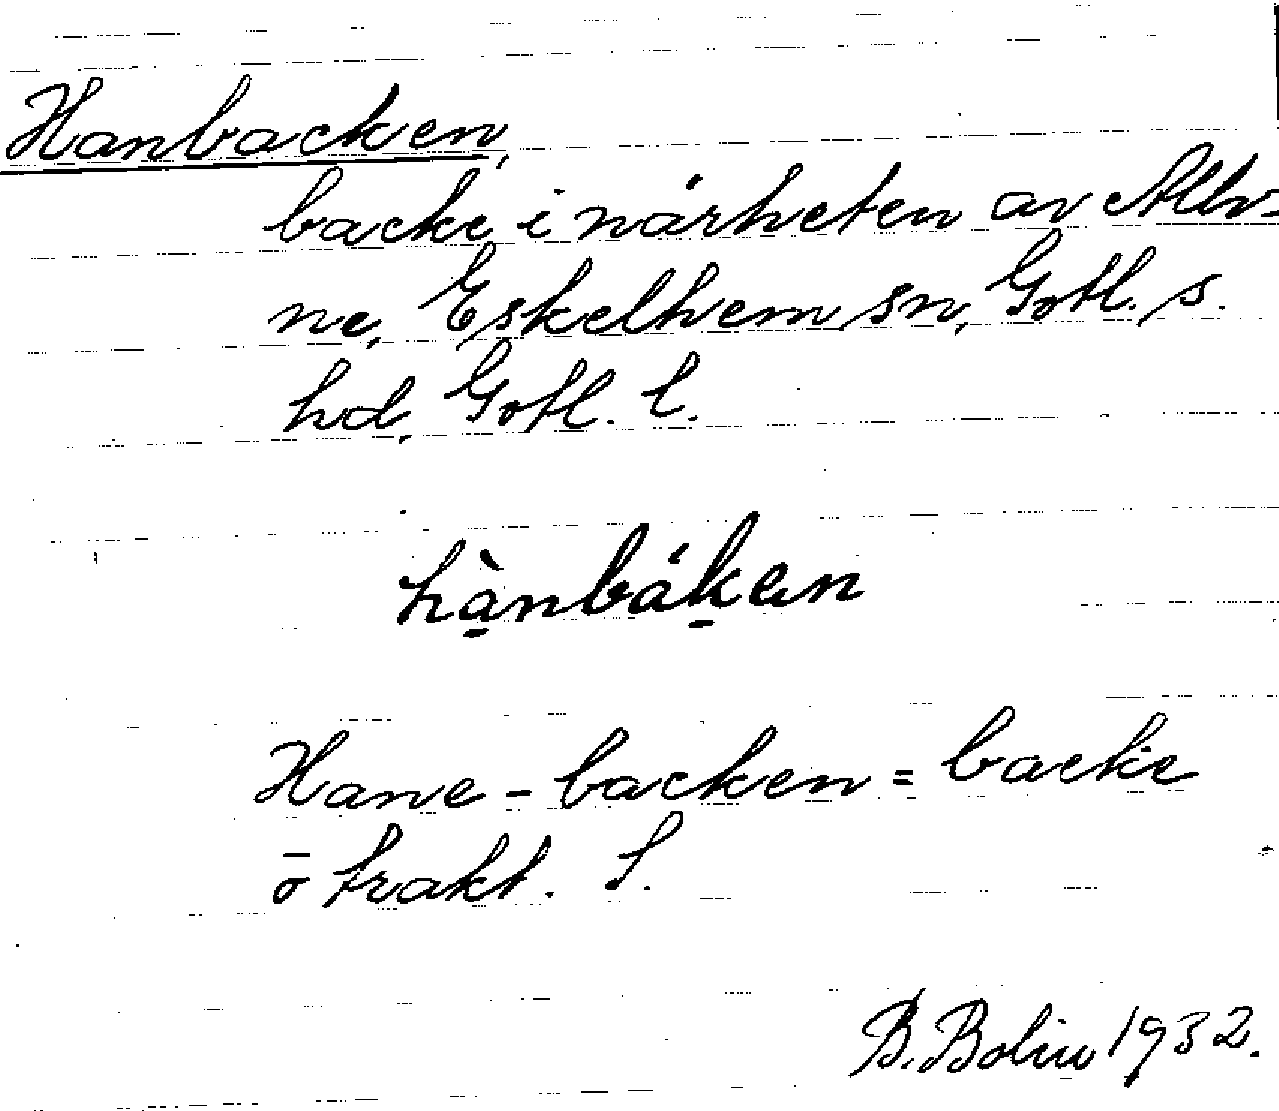 Hanbacken,
backe i närheten av Allv-
ne, Eskelhem sn, Gotl. s.
hd, Gotl. l.
hànbákən
Hane-backen = backe
o trakt. S.
B. Bolin 1932.